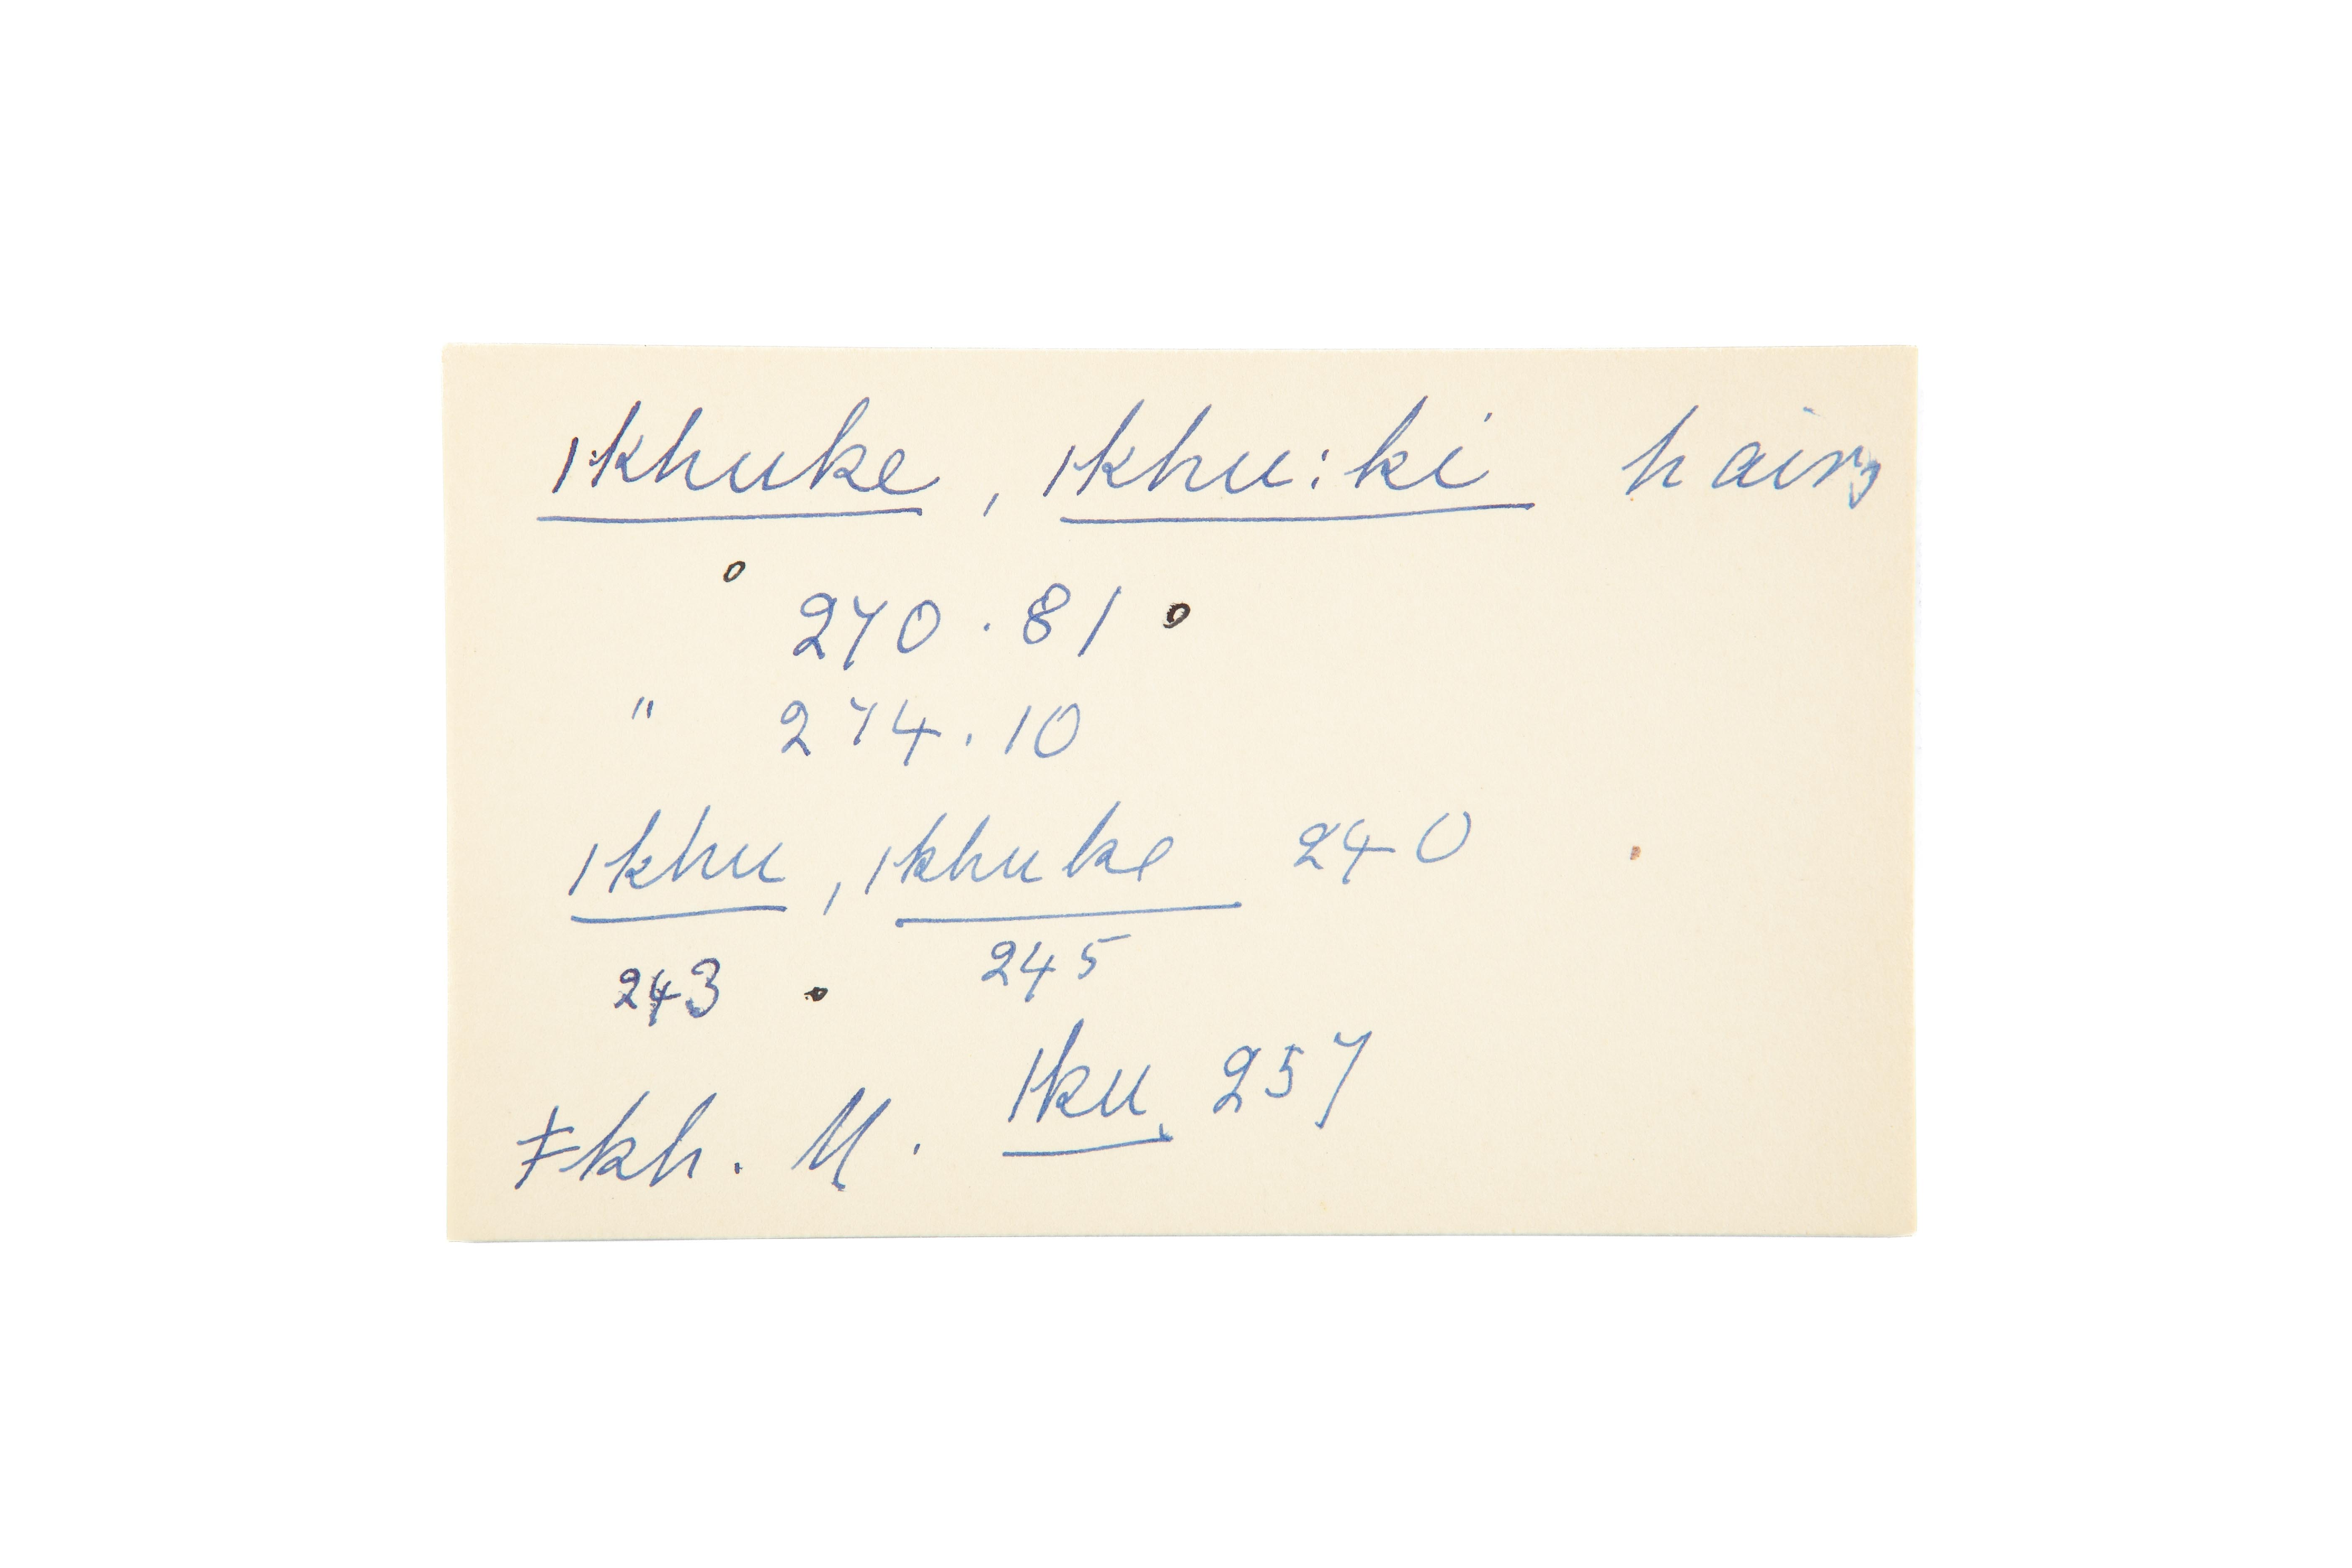 ǀkhuke, ǀkhu:ki hairs
270.81
" 274.10
ǀkhu, ǀkhuke 240
243 245
ǀku 257
ǂkh. M.